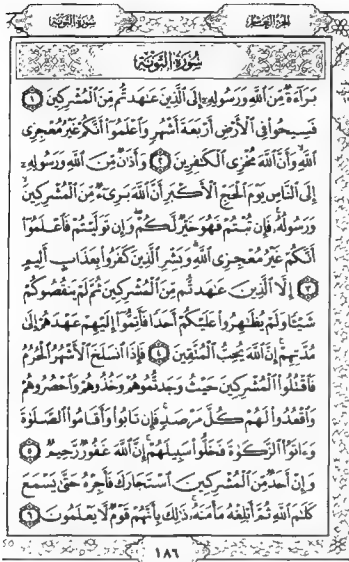 سُورَةُ التَّوْبَةِ
الجزء العاشر
سُورَةُ التَّوْبَةِ
بَرَآءَةٌ مِّنَ ٱللَّهِ وَرَسُولِهِۦٓ إِلَى ٱلَّذِينَ عَٰهَدتُّم مِّنَ ٱلْمُشْرِكِينَ ١
فَسِيحُوا۟ فِى ٱلْأَرْضِ أَرْبَعَةَ أَشْهُرٍ وَٱعْلَمُوٓا۟ أَنَّكُمْ غَيْرُ مُعْجِزِى
ٱللَّهِ وَأَنَّ ٱللَّهَ مُخْزِى ٱلْكَٰفِرِينَ ٢ وَأَذَٰنٌ مِّنَ ٱللَّهِ وَرَسُولِهِۦٓ
إِلَى ٱلنَّاسِ يَوْمَ ٱلْحَجِّ ٱلْأَكْبَرِ أَنَّ ٱللَّهَ بَرِىٓءٌ مِّنَ ٱلْمُشْرِكِينَ
وَرَسُولُهُۥ فَإِن تُبْتُمْ فَهُوَ خَيْرٌ لَّكُمْ وَإِن تَوَلَّيْتُمْ فَٱعْلَمُوٓا۟
أَنَّكُمْ غَيْرُ مُعْجِزِى ٱللَّهِ وَبَشِّرِ ٱلَّذِينَ كَفَرُوا۟ بِعَذَابٍ أَلِيمٍ
٣ إِلَّا ٱلَّذِينَ عَٰهَدتُّم مِّنَ ٱلْمُشْرِكِينَ ثُمَّ لَمْ يَنقُصُوكُمْ
شَيْـًٔا وَلَمْ يُظَٰهِرُوا۟ عَلَيْكُمْ أَحَدًا فَأَتِمُّوٓا۟ إِلَيْهِمْ عَهْدَهُمْ إِلَىٰ
مُدَّتِهِمْ إِنَّ ٱللَّهَ يُحِبُّ ٱلْمُتَّقِينَ ٤ فَإِذَا ٱنسَلَخَ ٱلْأَشْهُرُ ٱلْحُرُمُ
فَٱقْتُلُوا۟ ٱلْمُشْرِكِينَ حَيْثُ وَجَدتُّمُوهُمْ وَخُذُوهُمْ وَٱحْصُرُوهُمْ
وَٱقْعُدُوا۟ لَهُمْ كُلَّ مَرْصَدٍ فَإِن تَابُوا۟ وَأَقَامُوا۟ ٱلصَّلَوٰةَ
وَءَاتَوُا۟ ٱلزَّكَوٰةَ فَخَلُّوا۟ سَبِيلَهُمْ إِنَّ ٱللَّهَ غَفُورٌ رَّحِيمٌ ٥
وَإِنْ أَحَدٌ مِّنَ ٱلْمُشْرِكِينَ ٱسْتَجَارَكَ فَأَجِرْهُ حَتَّىٰ يَسْمَعَ
كَلَٰمَ ٱللَّهِ ثُمَّ أَبْلِغْهُ مَأْمَنَهُۥ ذَٰلِكَ بِأَنَّهُمْ قَوْمٌ لَّا يَعْلَمُونَ ٦
١٨٦